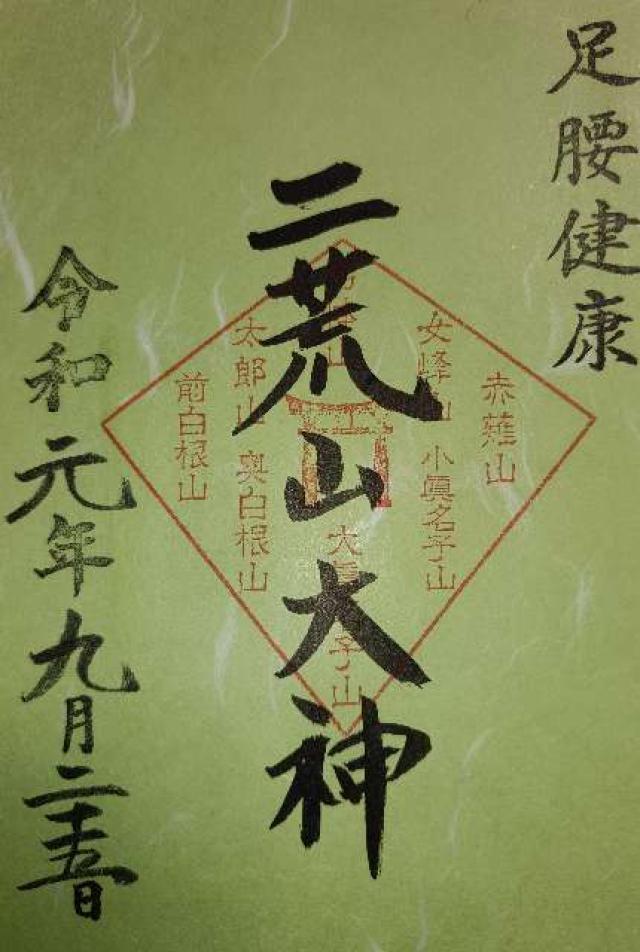 足腰健康
二荒山大神
赤薙山
女峰山
小眞名子山
太郎山
奥白根山
前白根山
令和元年九月二十五日